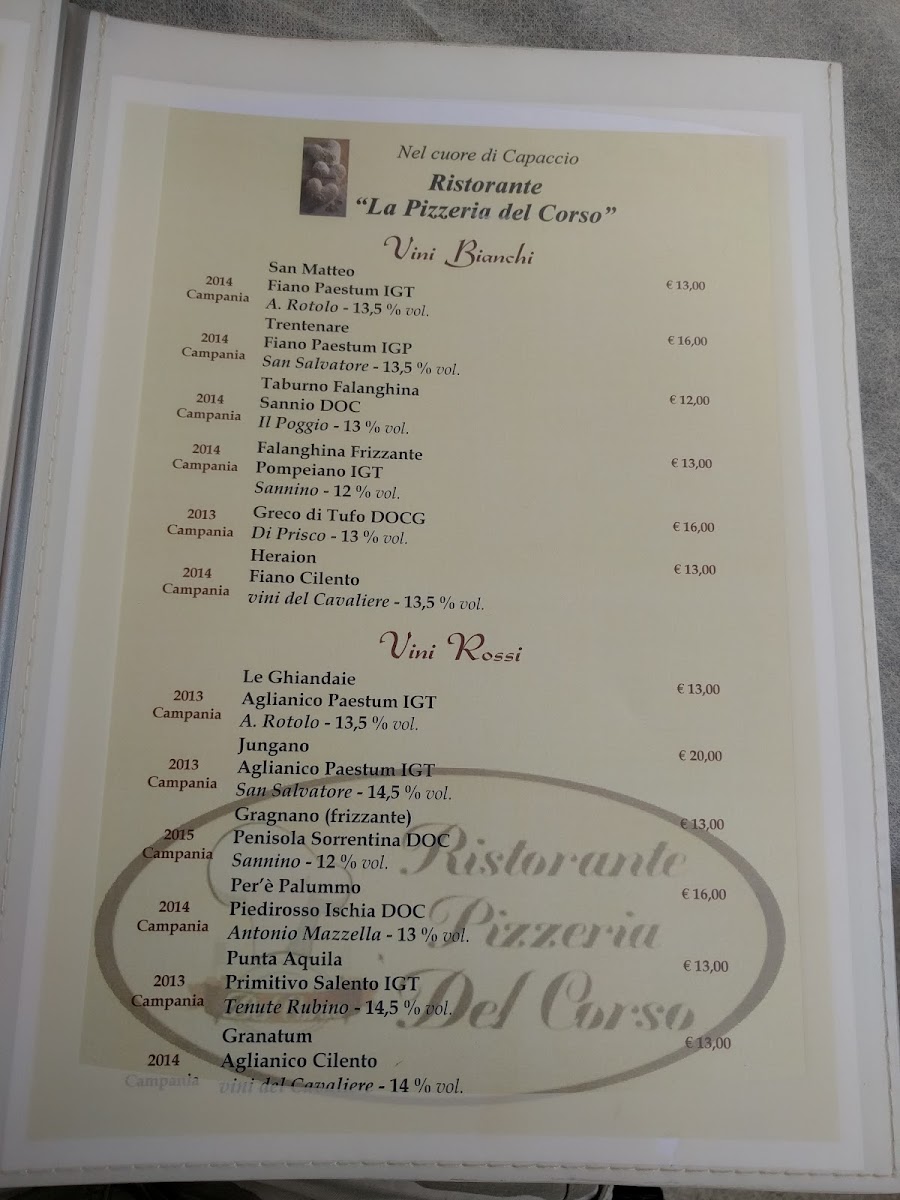 Nel cuore di Capaccio
Ristorante
“La Pizzeria del Corso”
Vini Bianchi
San Matteo
2014 Fiano Paestum IGT € 13,00
Campania A. Rotolo - 13,5 % vol.
Trentenare
2014 Fiano Paestum IGP € 16,00
Campania San Salvatore - 13,5 % vol.
Taburno Falanghina
2014 Sannio DOC € 12,00
Campania Il Poggio - 13 % vol.
2014 Falanghina Frizzante € 13,00
Campania Pompeiano IGT
Sannino - 12 % vol.
2013 Greco di Tufo DOCG € 16,00
Campania Di Prisco - 13 % vol.
Heraion € 13,00
2014 Fiano Cilento
Campania vini del Cavaliere - 13,5 % vol.
Vini Rossi
Le Ghiandaie € 13,00
2013 Aglianico Paestum IGT
Campania A. Rotolo - 13,5 % vol.
Jungano € 20,00
2013 Aglianico Paestum IGT
Campania San Salvatore - 14,5 % vol.
Gragnano (frizzante) € 13,00
2015 Penisola Sorrentina DOC
Campania Sannino - 12 % vol.
Per’è Palummo € 16,00
2014 Piedirosso Ischia DOC
Campania Antonio Mazzella - 13 % vol.
Punta Aquila € 13,00
2013 Primitivo Salento IGT
Campania Tenute Rubino - 14,5 % vol.
Granatum € 13,00
2014 Aglianico Cilento
Campania vini del Cavaliere - 14 % vol.
Ristorante
Pizzeria
Del Corso